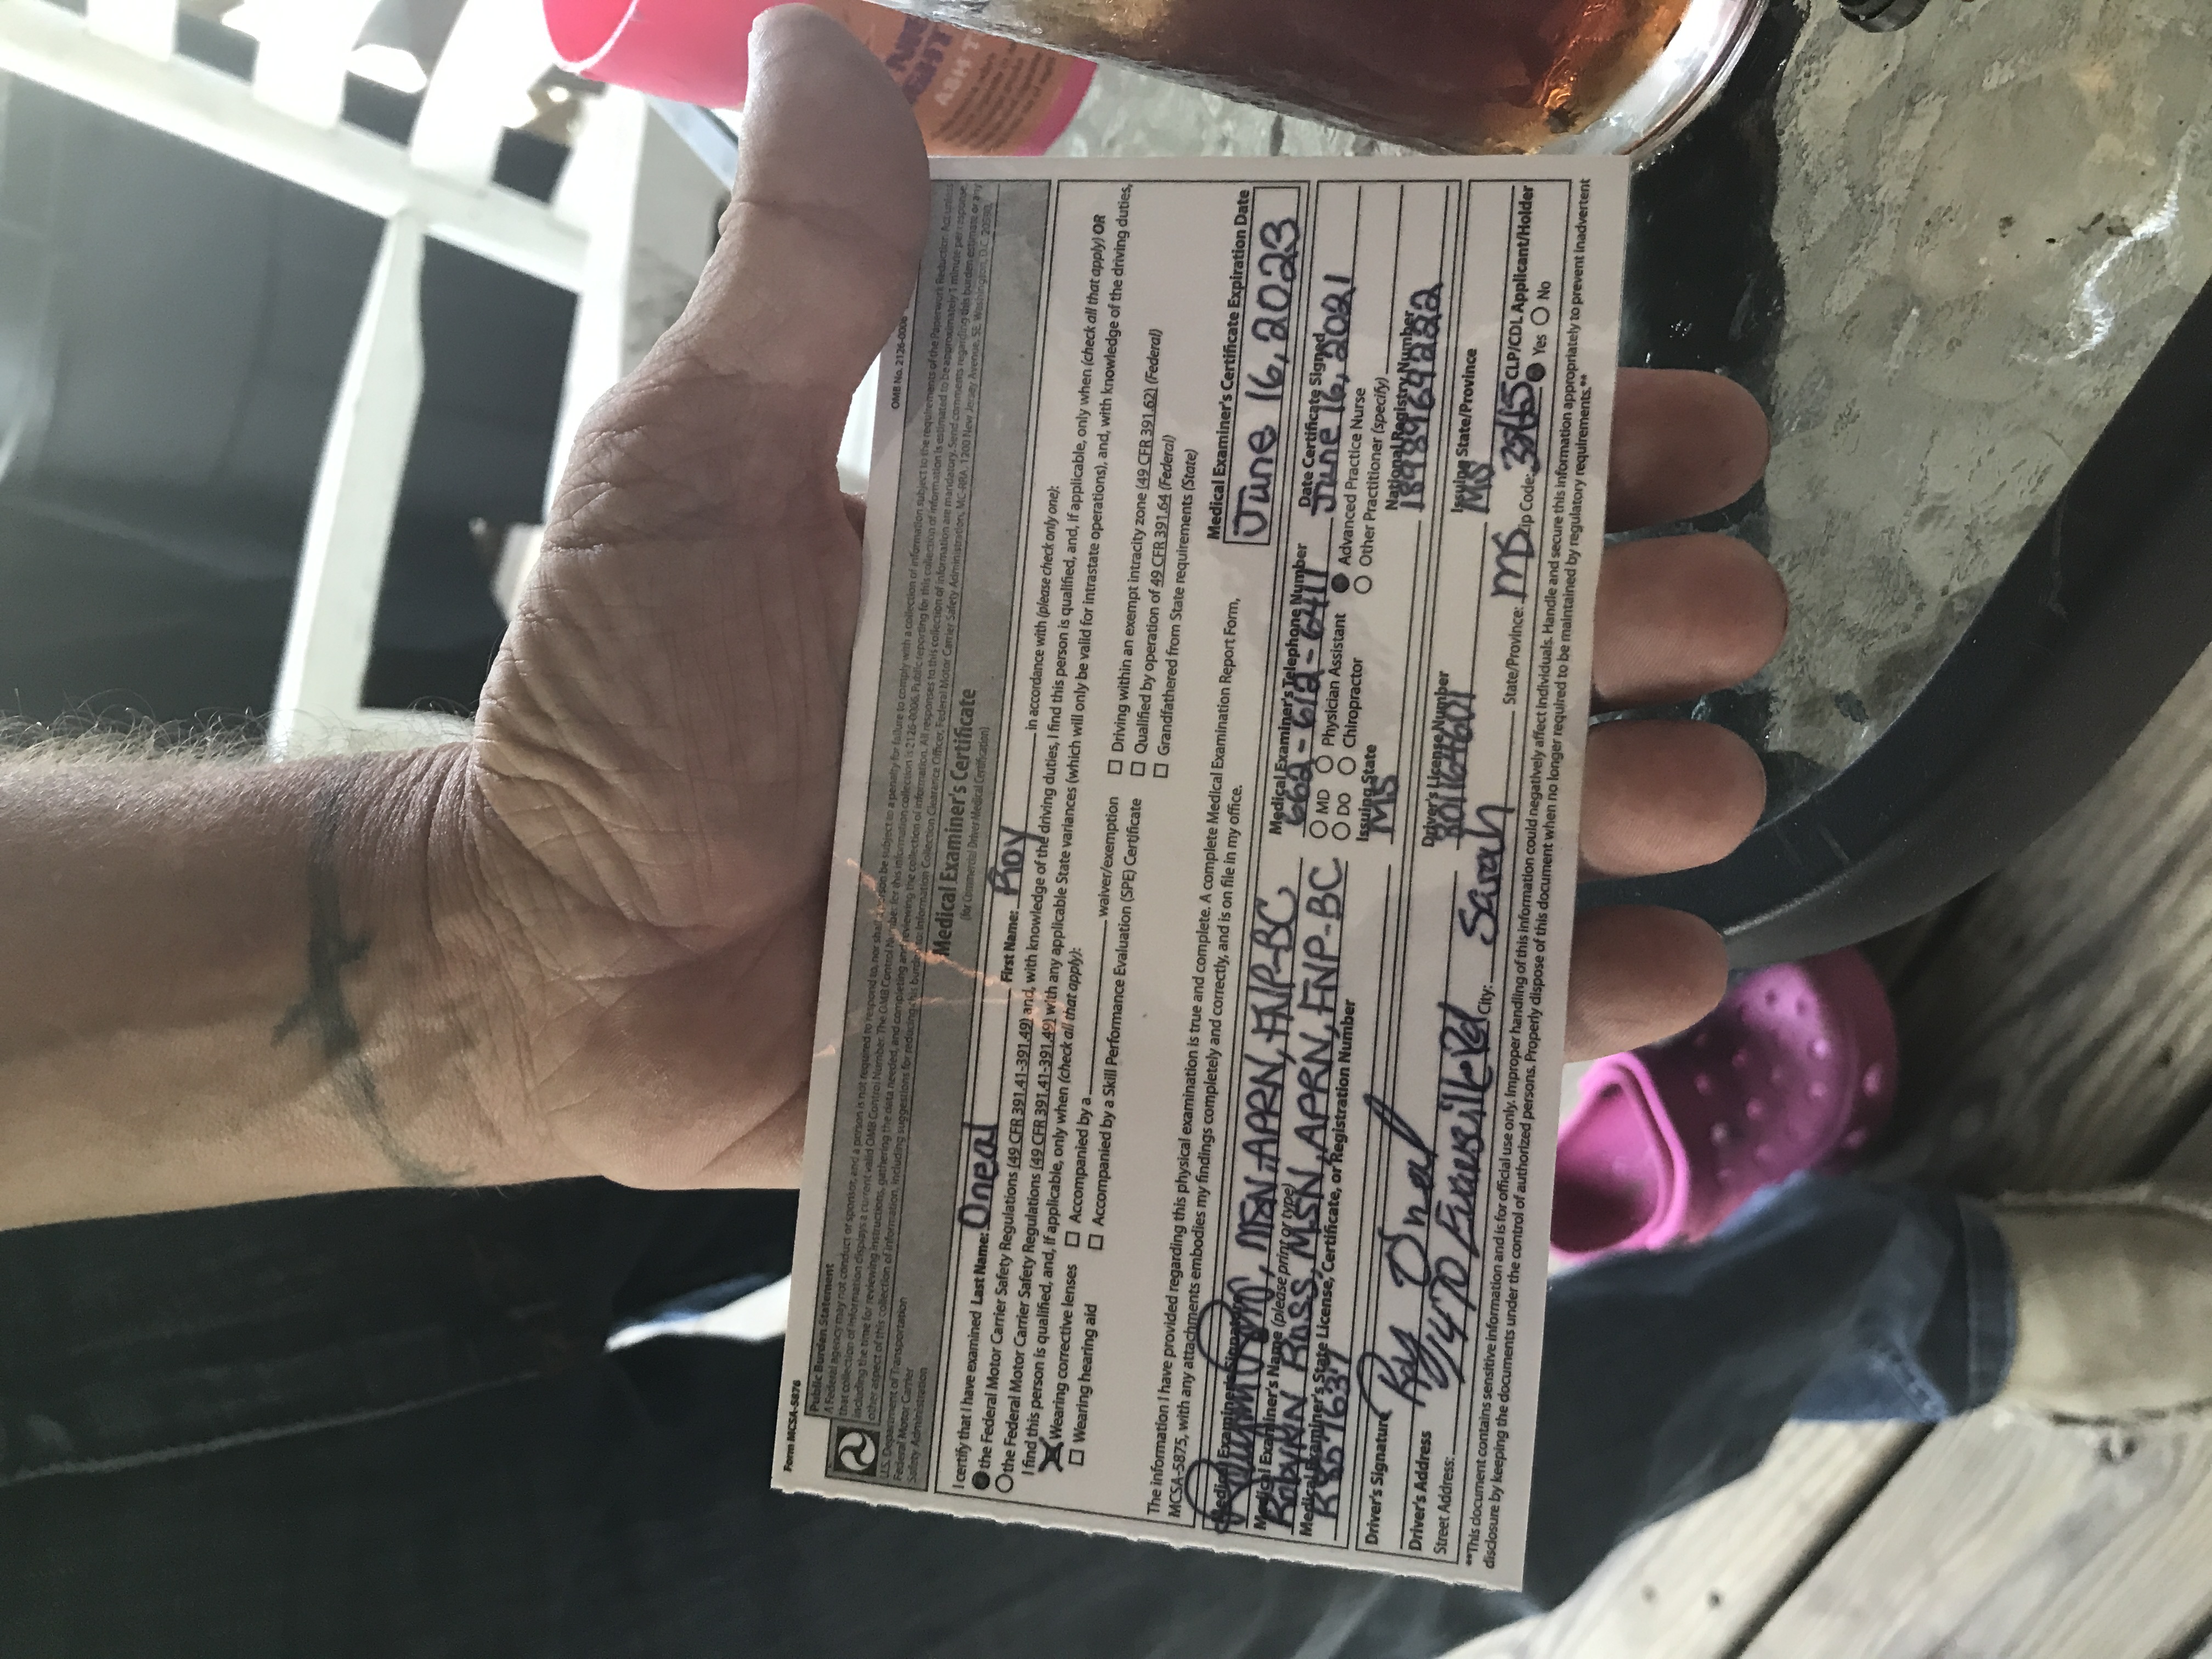 Form MCSA-5876
OMB No. 2126-0006
Public Burden Statement
A Federal agency may not conduct or sponsor, and a person is not required to respond to, nor shall a person be subject to a penalty for failure to comply with a collection of information subject to the requirements of the Paperwork Reduction Act unless
that collection of information displays a current valid OMB Control Number. The OMB Control Number for this information collection is 2126-0006. Public reporting for this collection of information is estimated to be approximately 1 minute per response,
including the time for reviewing instructions, gathering the data needed, and completing and reviewing the collection of information. All responses to this collection of information are mandatory. Send comments regarding this burden estimate or any
other aspect of this collection of information, including suggestions for reducing this burden to: Information Collection Clearance Officer, Federal Motor Carrier Safety Administration, MC-RRA, 1200 New Jersey Avenue, SE, Washington, D.C. 20590.
U.S. Department of Transportation
Federal Motor Carrier
Safety Administration
Medical Examiner's Certificate
(for Commercial Driver Medical Certification)
I certify that I have examined Last Name: Oneal First Name: Roy in accordance with (please check only one):
the Federal Motor Carrier Safety Regulations (49 CFR 391.41-391.49) and, with knowledge of the driving duties, I find this person is qualified, and, if applicable, only when (check all that apply) OR
the Federal Motor Carrier Safety Regulations (49 CFR 391.41-391.49) with any applicable State variances (which will only be valid for intrastate operations), and, with knowledge of the driving duties,
I find this person is qualified, and, if applicable, only when (check all that apply):
Wearing corrective lenses Accompanied by a waiver/exemption Driving within an exempt intracity zone (49 CFR 391.62) (Federal)
Wearing hearing aid Accompanied by a Skill Performance Evaluation (SPE) Certificate Qualified by operation of 49 CFR 391.64 (Federal)
Grandfathered from State requirements (State)
The information I have provided regarding this physical examination is true and complete. A complete Medical Examination Report Form,
MCSA-5875, with any attachments embodies my findings completely and correctly, and is on file in my office.
Medical Examiner's Certificate Expiration Date
June 16, 2023
Medical Examiner's Signature Medical Examiner's Telephone Number Date Certificate Signed
Robynn Ross, MSN, APRN, FNP-BC 662-612-6411 June 16, 2021
Medical Examiner's Name (please print or type) MD Physician Assistant Advanced Practice Nurse
Robynn Ross, MSN, APRN, FNP-BC DO Chiropractor Other Practitioner (specify)
Medical Examiner's State License, Certificate, or Registration Number Issuing State National Registry Number
R857637 MS 1898969222
Driver's Signature Driver's License Number Issuing State/Province
Roy Oneal 801164601 MS
Driver's Address
Street Address: 1470 Evansville Rd City: Sarah State/Province: MS Zip Code: CLP/CDL Applicant/Holder
Yes No
**This document contains sensitive information and is for official use only. Improper handling of this information could negatively affect individuals. Handle and secure this information appropriately to prevent inadvertent
disclosure by keeping the documents under the control of authorized persons. Properly dispose of this document when no longer required to be maintained by regulatory requirements.**